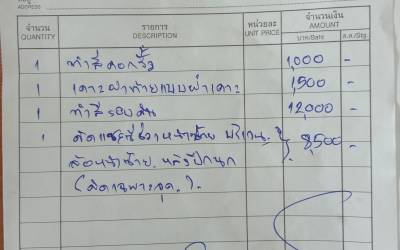 ADDRESS
จำนวน รายการ หน่วยละ จำนวนเงิน
QUANTITY DESCRIPTION UNIT PRICE AMOUNT
บาท/Baht ส.ต./Stg.
1 ทำสีดอกจิ้ว 1,000 -
1 เคาะฝาท้ายแบบฝาเคาะ 1,500 -
1 ทำสีรอบคัน 12,000 -
1 ตัดแชสซีขวาหน้าซ้าย บริเวณ 8,500 -
ล้อหน้าซ้าย หลังปีกนก
(ตัดเฉพาะจุด.).